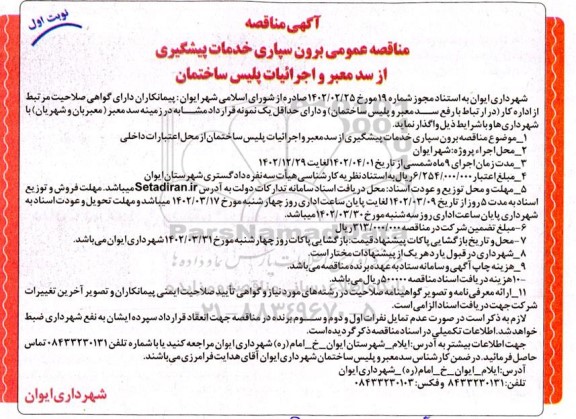 نوبت اول
آگهی مناقصه
مناقصه عمومی برون سپاری خدمات پیشگیری
از سد معبر و اجرائیات پلیس ساختمان
شهرداری ایوان به استناد مجوز شماره ۱۹ مورخ ۱۴۰۲/۰۲/۲۵ صادره از شورای اسلامی شهر ایوان: پیمانکاران دارای گواهی صلاحیت مرتبط
از اداره کار (در ارتباط با رفع سد معبر و پلیس ساختمان) و دارای حداقل یک نمونه قرارداد مشابه در زمینه سد معبر (معبربان و شهربان) با
شهرداری ها و با شرایط ذیل واگذار نماید.
۱_موضوع مناقصه برون سپاری خدمات پیشگیری از سد معبر و اجرائیات پلیس ساختمان از محل اعتبارات داخلی
۲_محل اجراء پروژه: شهر ایوان
۳_مدت زمان اجرای ۹ ماه شمسی از تاریخ ۱۴۰۲/۰۴/۰۱ لغایت ۱۴۰۲/۱۲/۲۹
۴_مبلغ اعتبار ۶/۲۵۴/۰۰۰/۰۰۰ ریال به استناد نظریه کارشناسی هیأت سه نفره دادگستری شهرستان ایوان
۵_مهلت و محل توزیع و عودت اسناد: محل دریافت اسناد سامانه تدارکات دولت به آدرس Setadiran.ir میباشد. مهلت فروش و توزیع
اسناد به مدت ۵ روز از تاریخ ۱۴۰۲/۰۳/۰۹ لغایت پایان ساعت اداری روز چهار شنبه مورخ ۱۴۰۲/۰۳/۱۷ میباشد و مهلت تحویل و عودت اسناد به
شهرداری پایان ساعت اداری روز سه شنبه مورخ ۱۴۰۲/۰۳/۳۰ میباشد.
۶-مبلغ تضمین شرکت در مناقصه ۳۱۳/۰۰۰/۰۰۰ ریال
۷-محل و تاریخ بازگشایی پاکات پیشنهاد قیمت: بازگشایی پاکات روز چهار شنبه مورخ ۱۴۰۲/۰۳/۳۱ شهرداری ایوان می باشد.
۸_شهرداری در قبول یا رد هر یک از پیشنهادات مختار است.
۹_هزینه چاپ آگهی و سامانه ستاد به عهده برنده مناقصه می باشد.
۱۰-هزینه دریافت اسناد مناقصه ۵۰۰۰۰۰ ریال می باشد
۱۱_ارائه معرفی نامه و تصویر گواهینامه صلاحیت در رشته های مورد نیاز و گواهی تأیید صلاحیت ایمنی پیمانکاران و تصویر آخرین تغییرات
شرکت جهت دریافت اسناد الزامی است.
لازم به ذکر است در صورت عدم تمایل نفرات اول و دوم و سوم برنده در مناقصه جهت انعقاد قرارداد سپرده ایشان به نفع شهرداری ضبط
خواهد شد. اطلاعات تکمیلی در اسناد مناقصه ذکر گردیده است.
جهت اطلاعات بیشتر به آدرس: ایلام_شهرستان ایوان_خ_امام (ره) شهرداری ایوان مراجعه کنید یا با شماره تلفن ۰۸۴۳۳۲۳۰۱۳۱ تماس
حاصل فرمائید. در ضمن کارشناس سد معبر و پلیس ساختمان شهرداری ایوان آقای هدایت فرامرزی می باشند.
آدرس: ایلام_ایوان_خ_امام (ره)_شهرداری ایوان
تلفن: ۸۴۳۳۲۳۰۱۳۱ و فکس: ۰۸۴۳۳۲۳۰۱۰۳
شهرداری ایوان